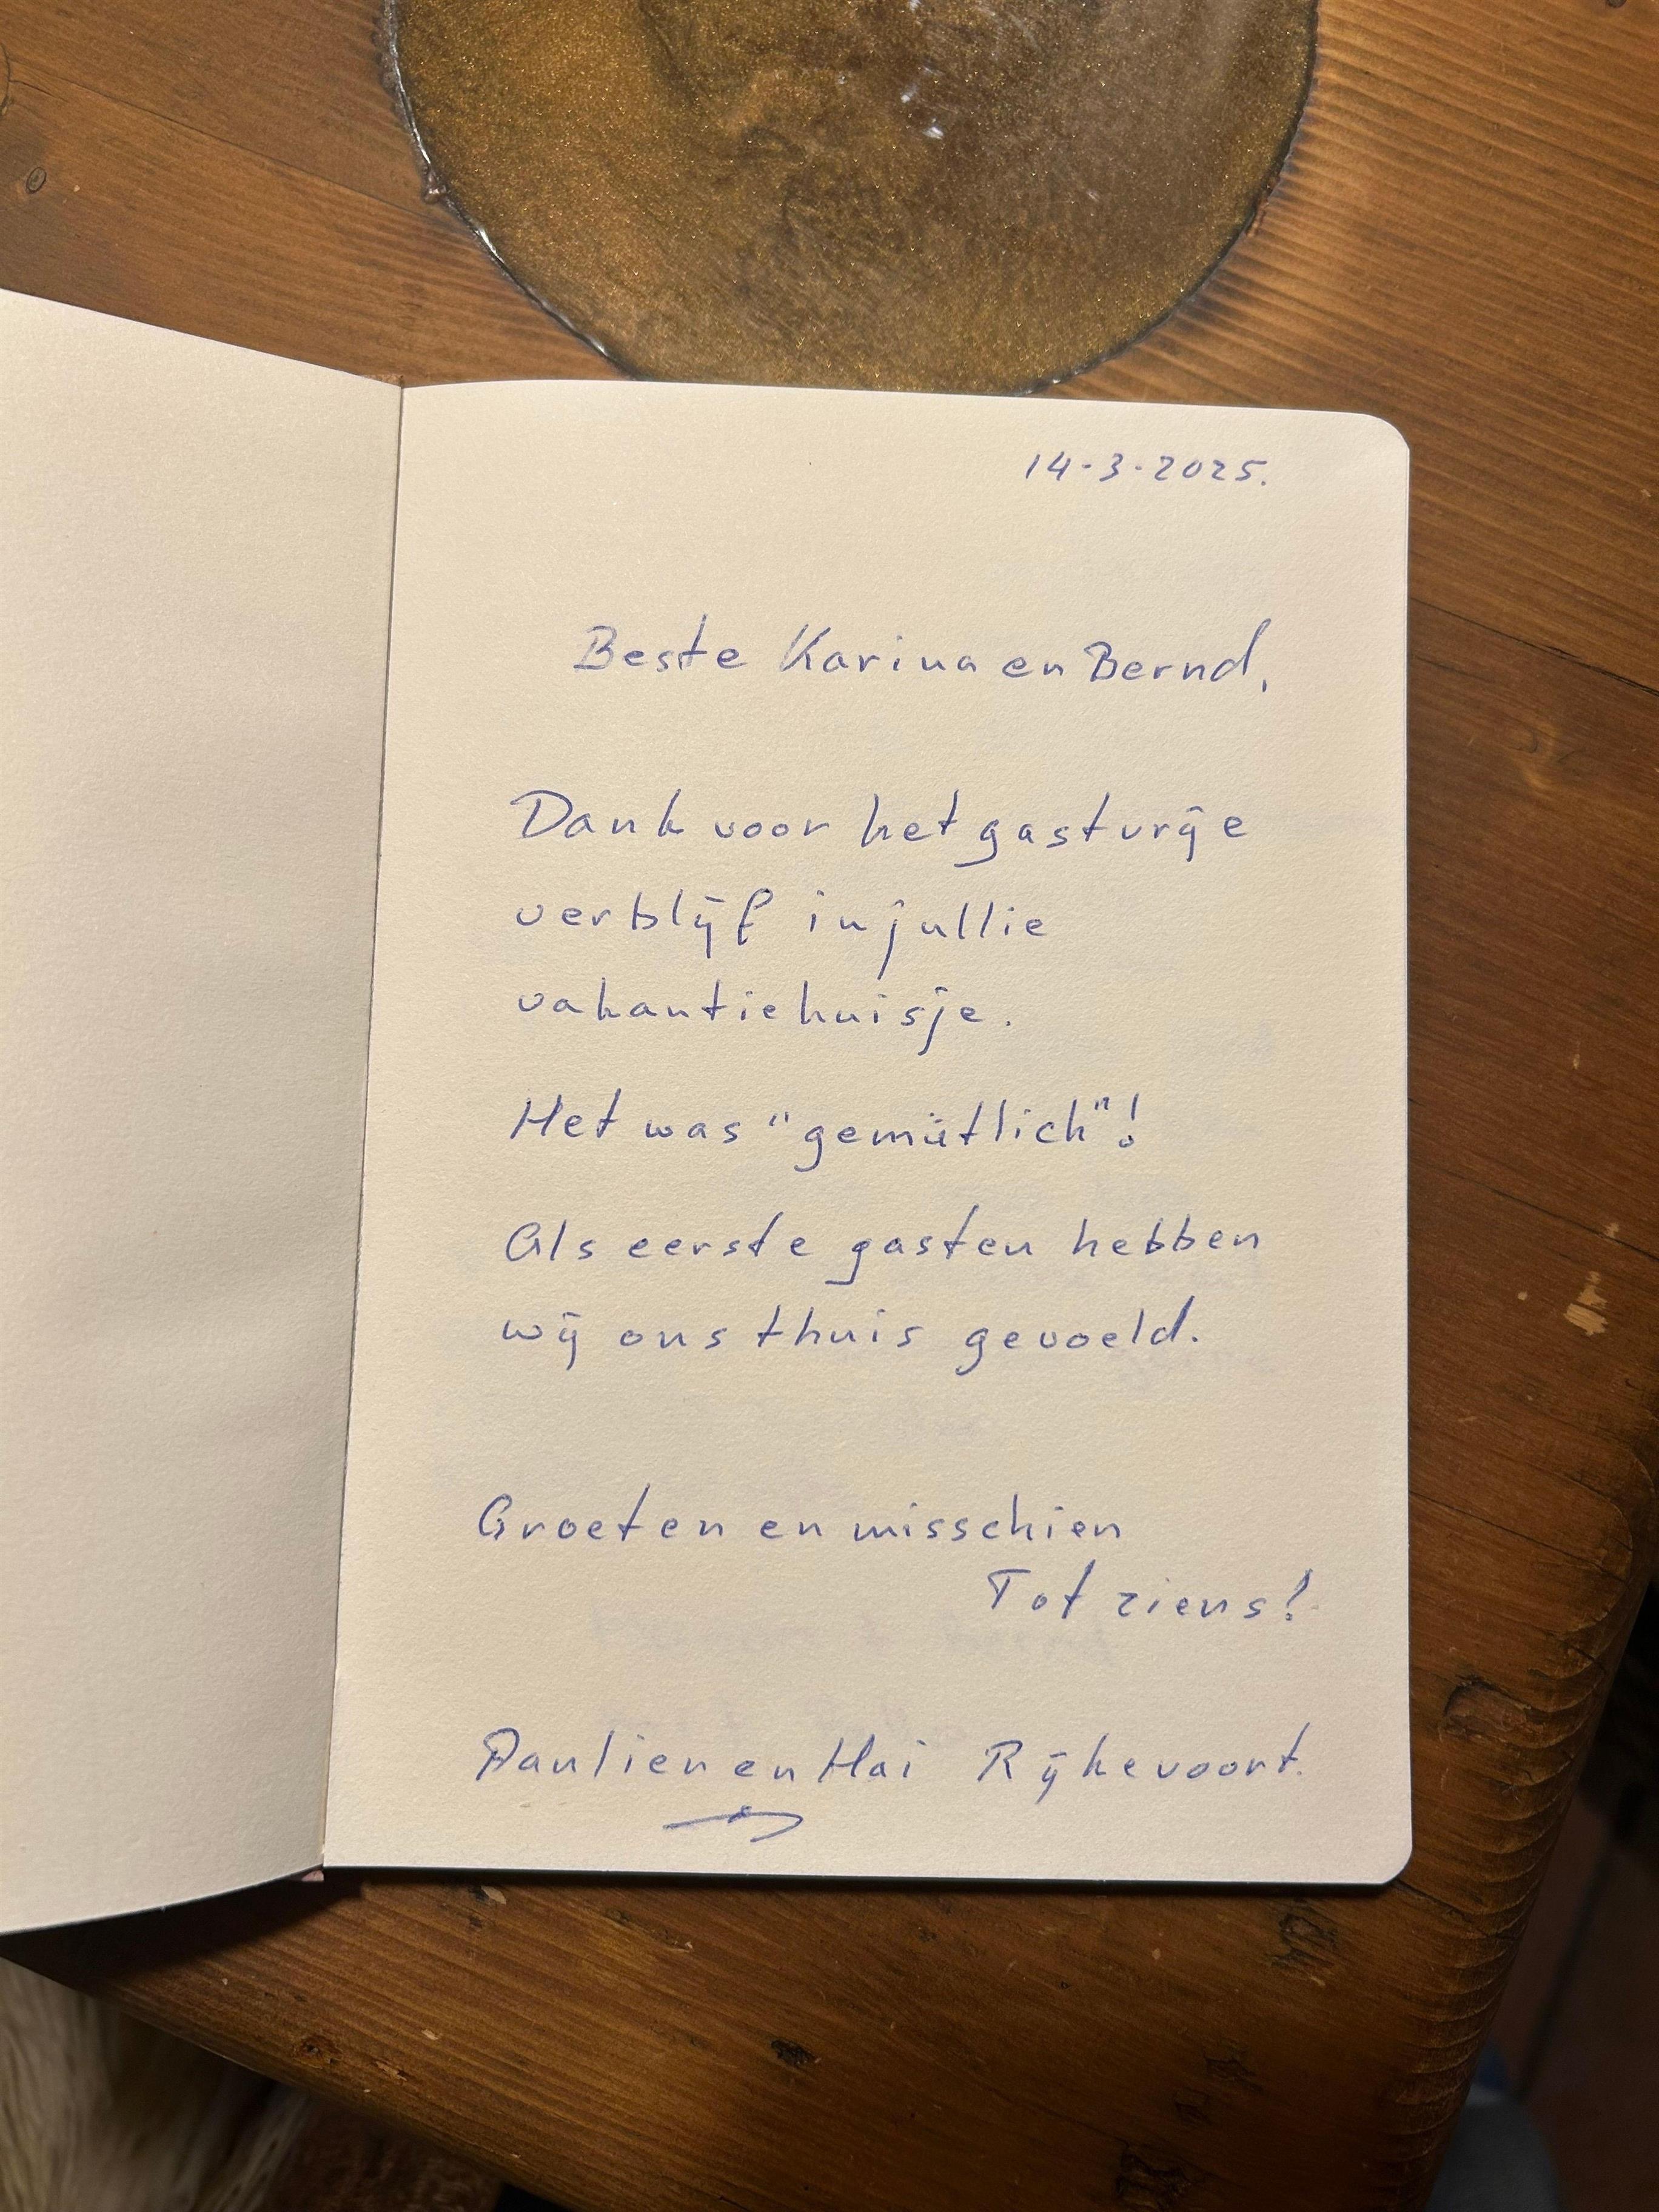 14-3-2025.
Beste Karina en Bernd,
Dank voor het gastvrije
verblijf in jullie
vakantiehuisje.
Het was "gemütlich"!
Als eerste gasten hebben
wij ons thuis gevoeld.
Groeten en misschien
Tot ziens!
Paulien en Hai Rijkevoort.